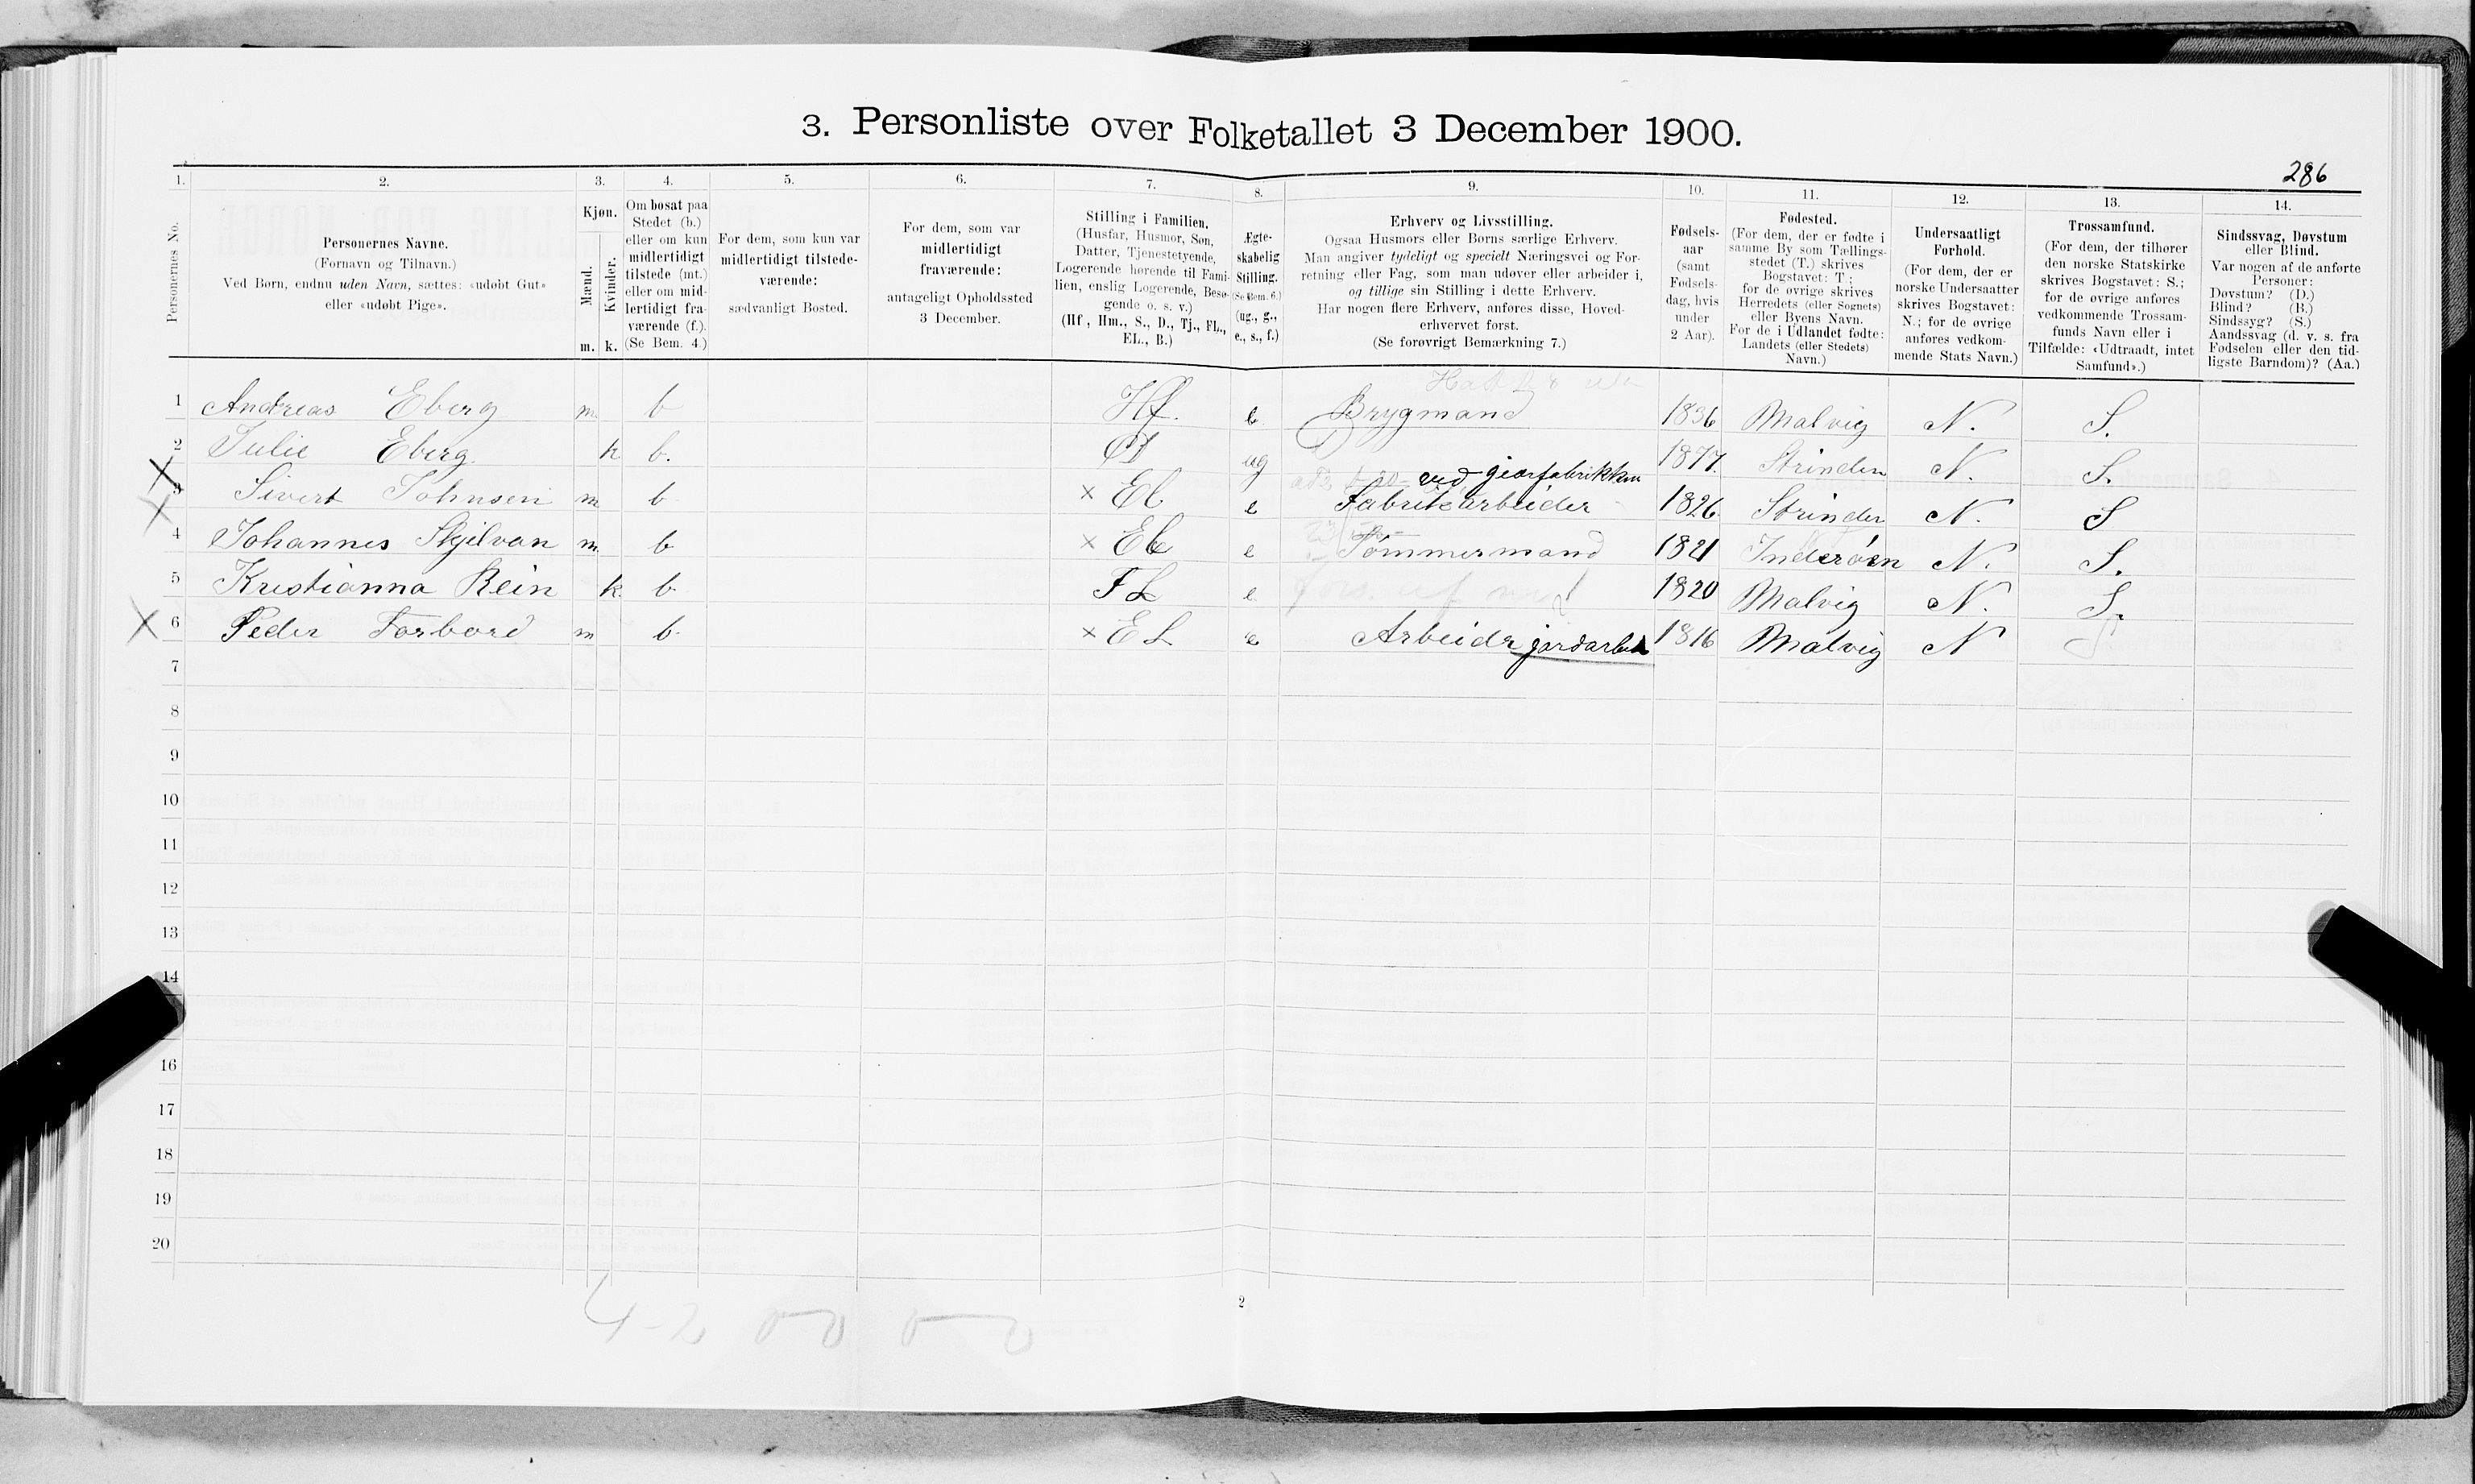 3. Personliste over Folketallet 3 December 1900.
286
1. 2. 3. 4. 5. 6. 7. 8. 9. 10. 11. 12. 13. 14.
Personernes No.
Personernes Navne.
(Fornavn og Tilnavn.)
Ved Børn, endnu uden Navn, sættes: «udøbt Gut»
eller «udøbt Pige».
Kjøn.
Mænd.
Kvinder.
m. k.
Om bosat paa
Stedet (b.)
eller om kun
midlertidigt
tilstede (mt.)
eller om mid-
lertidigt fra-
værende (f.).
(Se Bem. 4.)
For dem, som kun var
midlertidigt tilstede-
værende:
sædvanligt Bosted.
For dem, som var
midlertidigt
fraværende:
antageligt Opholdssted
3 December.
Stilling i Familien.
(Husfar, Husmor, Søn,
Datter, Tjenestetyende,
Logerende hørende til Fami-
lien, enslig Logerende, Besø-
gende o. s. v.)
(Hf., Hm., S., D., Tj., FL.,
EL., B.)
Ægte-
skabelig
Stilling.
(Se Bem. 6.)
(ug., g.,
e., s., f.)
Erhverv og Livsstilling.
Ogsaa Husmors eller Børns særlige Erhverv.
Man angiver tydeligt og specielt Næringsvei og For-
retning eller Fag, som man udøver eller arbeider i,
og tillige sin Stilling i dette Erhverv.
Har nogen flere Erhverv, anføres disse, Hoved-
erhvervet først.
(Se forøvrigt Bemærkning 7.)
Fødsels-
aar
(samt
Fødsels-
dag, hvis
under
2 Aar).
Fødested.
(For dem, der er fødte i
samme By som Tællings-
stedet (T.) skrives
Bogstavet: T.;
for de øvrige skrives
Herredets (eller Sognets)
eller Byens Navn.
For de i Udlandet fødte:
Landets (eller Stedets)
Navn.)
Undersaatligt
Forhold.
(For dem, der er
norske Undersaatter
skrives Bogstavet:
N.; for de øvrige
anføres vedkom-
mende Stats Navn.)
Trossamfund.
(For dem, der tilhører
den norske Statskirke
skrives Bogstavet: S.;
for de øvrige anføres
vedkommende Trossam-
funds Navn eller i
Tilfælde: «Udtraadt, intet
Samfund».)
Sindssvag, Døvstum
eller Blind.
Var nogen af de anførte
Personer:
Døvstum? (D.)
Blind? (B.)
Sindssyg? (S.)
Aandssvag (d. v. s. fra
Fødselen eller den tid-
ligste Barndom)? (Aa.)
1 Andreas Eberg m. b Hf. e Brygmand 1836 Malvig N. S.
2 Julie Eberg k b. D ug 1877. Strinden N. S.
ved gjærfabrikken
3 Sivert Johnsen m b × El e Fabrikarbeider 1826 Strinden N. S
4 Johannes Skjelvan m. b × El e Tømmermand 1821 Inderøen N. S.
5 Kristianna Rein k. b. FL e 1820 Malvig N. S.
6 Peder Forbord m b. × EL e Arbeider jordarbeid 1816 Malvig N S
7
8
9
10
11
12
13
14
16
17
18
19
20
4-2
2